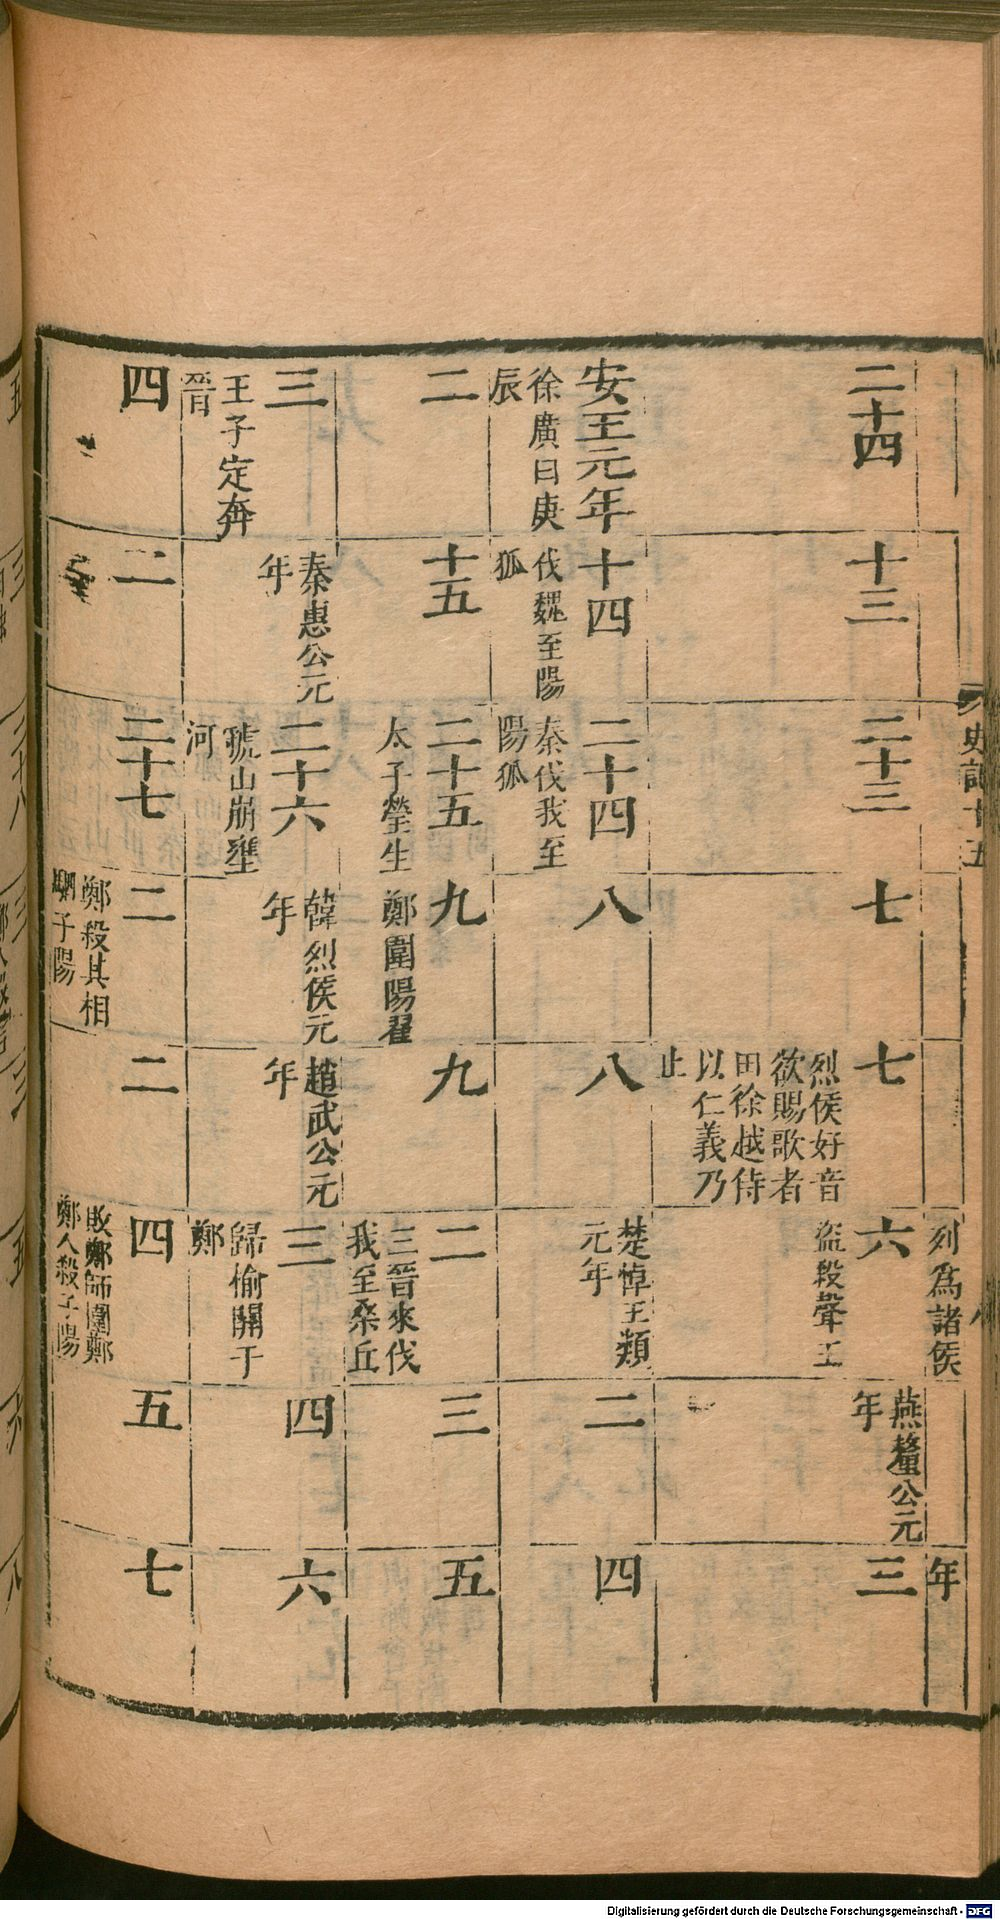 史記十五
列爲諸侯
年
二十四
十三
二十三
七
七
烈侯好音
欲賜歌者
田徐越侍
以仁義乃
止
六
盜殺聲王
燕釐公元
年
三
安王元年
徐廣曰庚
辰
十四
伐魏至陽
狐
二十四
秦伐我至
陽狐
八
八
楚悼王類
元年
二
四
二
十五
二十五
太子罃生
九
鄭圍陽翟
九
二
三晉來伐
我至桑丘
三
五
三
王子定奔
晉
秦惠公元
年
二十六
虢山崩壅
河
韓烈侯元
年
趙武公元
年
三
歸榆關于
鄭
四
六
四
二
二十七
二
鄭殺其相
駟子陽
二
四
敗鄭師圍鄭
鄭人殺子陽
五
七
Digitalisierung gefördert durch die Deutsche Forschungsgemeinschaft - DFG